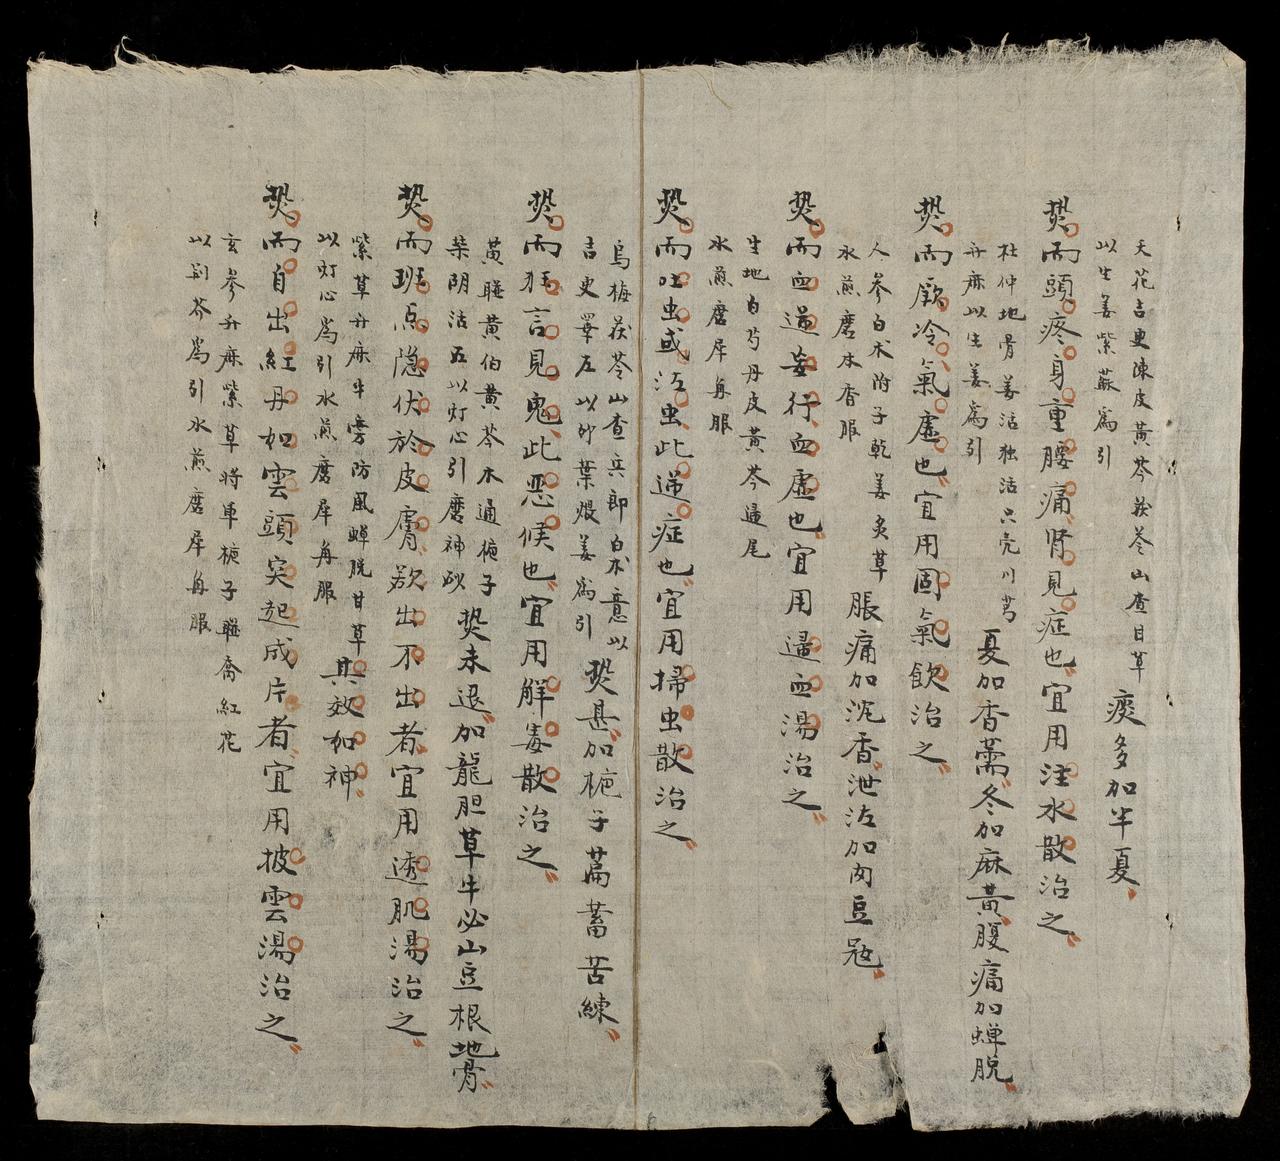 天花吉更陳皮黃芩茯苓山查甘草
以生姜紫蘇為引
痰多加半夏
熱而頭疼身重腰痛腎見症也宜用注水散治之
杜仲地骨姜活独活只壳川芎
升麻以生姜為引
夏加香薷冬加麻黃腹痛加蝉脫
熱而厥冷氣虛也宜用固氣飲治之
人參白术附子乾姜炙草
水煎磨木香服
脹痛加沉香泄泻加肉豆蔻
熱而血逆妄行血虛也宜用逼血湯治之
生地白芍丹皮黃芩逼尾
水煎磨犀角服
熱而吐虫或泻虫此逆症也宜用掃虫散治之
烏梅茯苓山查兵郎白术意以
吉更澤左以砂葉煨姜為引
熱甚加梔子萹蓄苦練
熱而狂言見鬼此恶候也宜用解毒散治之
黃連黃伯黃芩木通梔子
柴胡沽五以灯心引磨神砂
熱未退加龍胆草牛必山豆根地骨
熱而班点隐伏於皮膚欲出不出者宜用透肌湯治之
紫草升麻牛旁防風蝉脫甘草
以灯心為引水煎磨犀角服
其效如神
熱而自出紅丹如雲頭突起成片者宜用披雲湯治之
玄參升麻紫草将軍梔子連喬紅花
以荆芥為引水煎磨犀角服